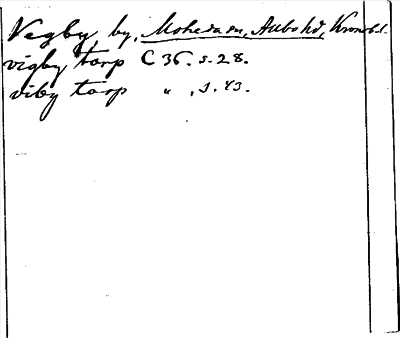 Vegby by, Moheda sn, Allbo hd, Kronob. l.
vigby torp C 36. s. 28.
viby torp " , s. 43.